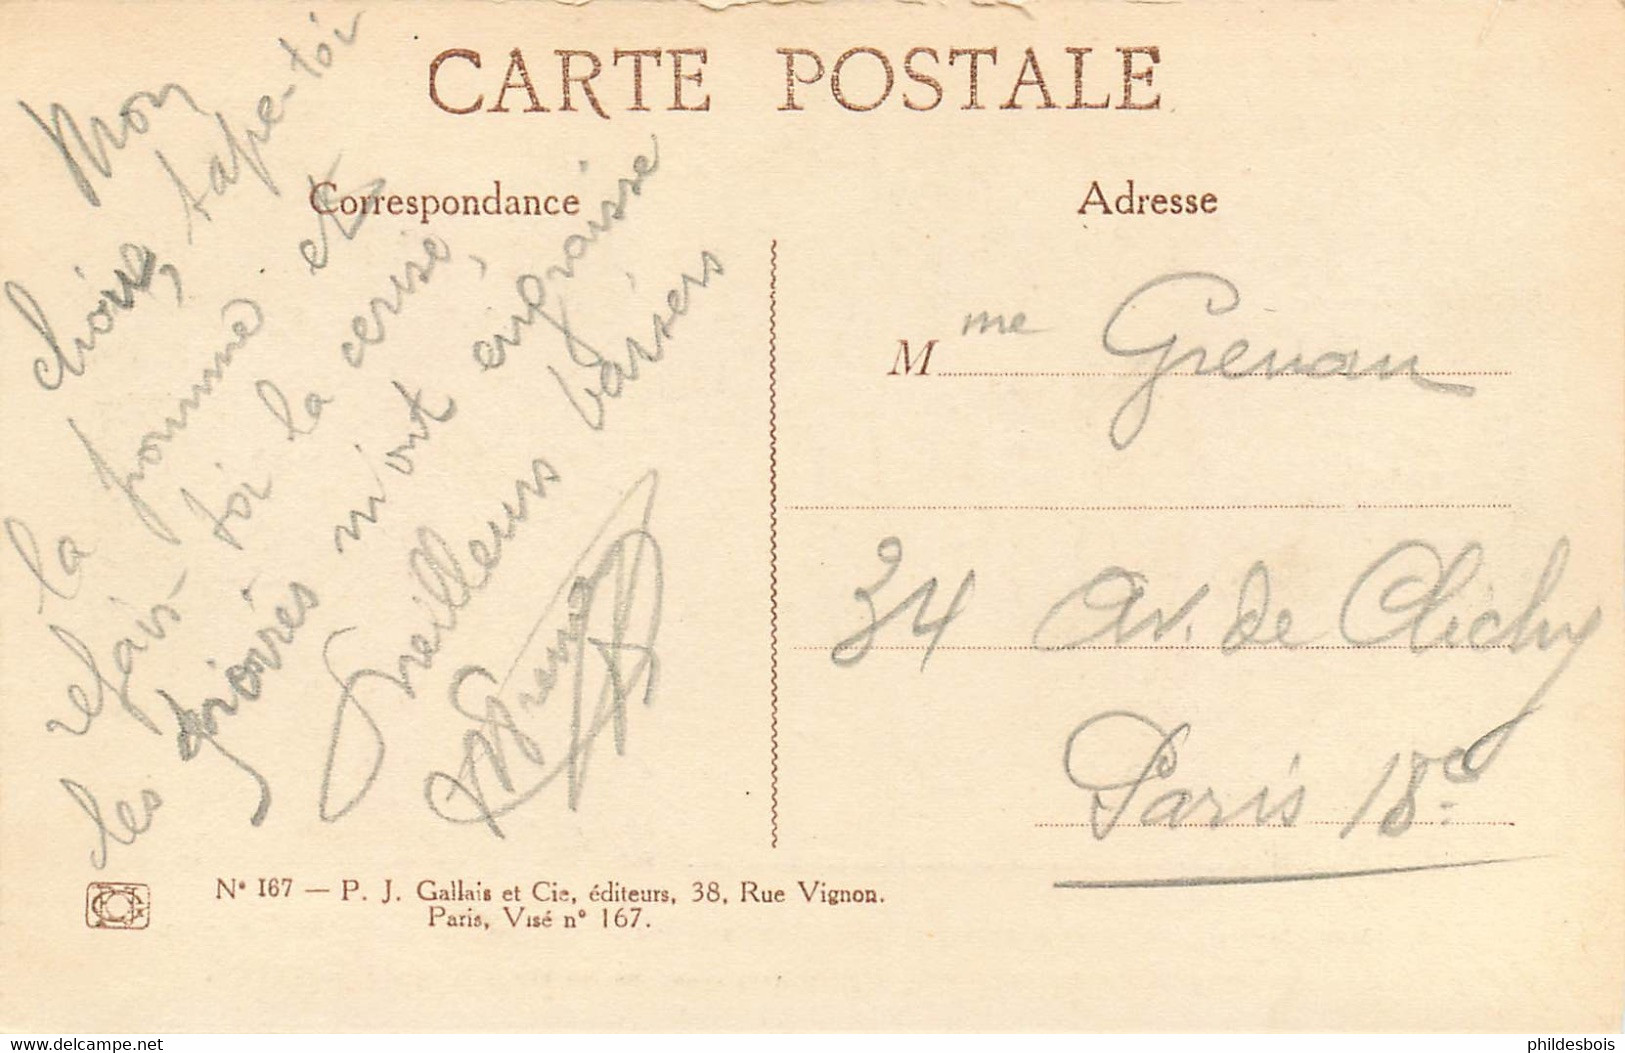 CARTE POSTALE
Correspondance
Adresse
Mon
choux, tape-toi
la pomme et
refais-toi la cerise,
les poires m'ont engraissé
Meilleurs baisers
Mme Grenan
34 Av. de Clichy
Paris 18e
N° 167 — P. J. Gallais et Cie, éditeurs, 38, Rue Vignon.
Paris, Visé n° 167.
www.delcampe.net
phildesbois